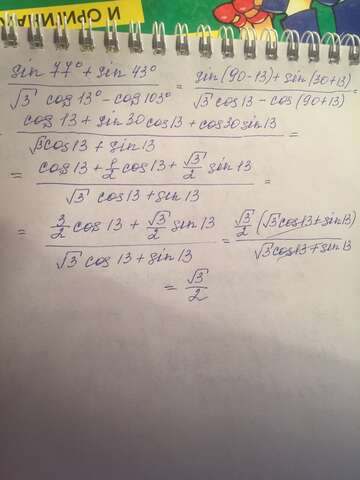 И ОРИГИНА
sin 77° + sin 43° / √3 cos 13° - cos 103° = sin(90-13) + sin(30+13) / √3 cos 13 - cos(90+13) =
cos 13 + sin 30 cos 13 + cos 30 sin 13 / √3 cos 13 + sin 13 =
= cos 13 + 1/2 cos 13 + √3/2 sin 13 / √3 cos 13 + sin 13 =
= 3/2 cos 13 + √3/2 sin 13 / √3 cos 13 + sin 13 = √3/2 (√3 cos 13 + sin 13) / √3 cos 13 + sin 13
= √3/2